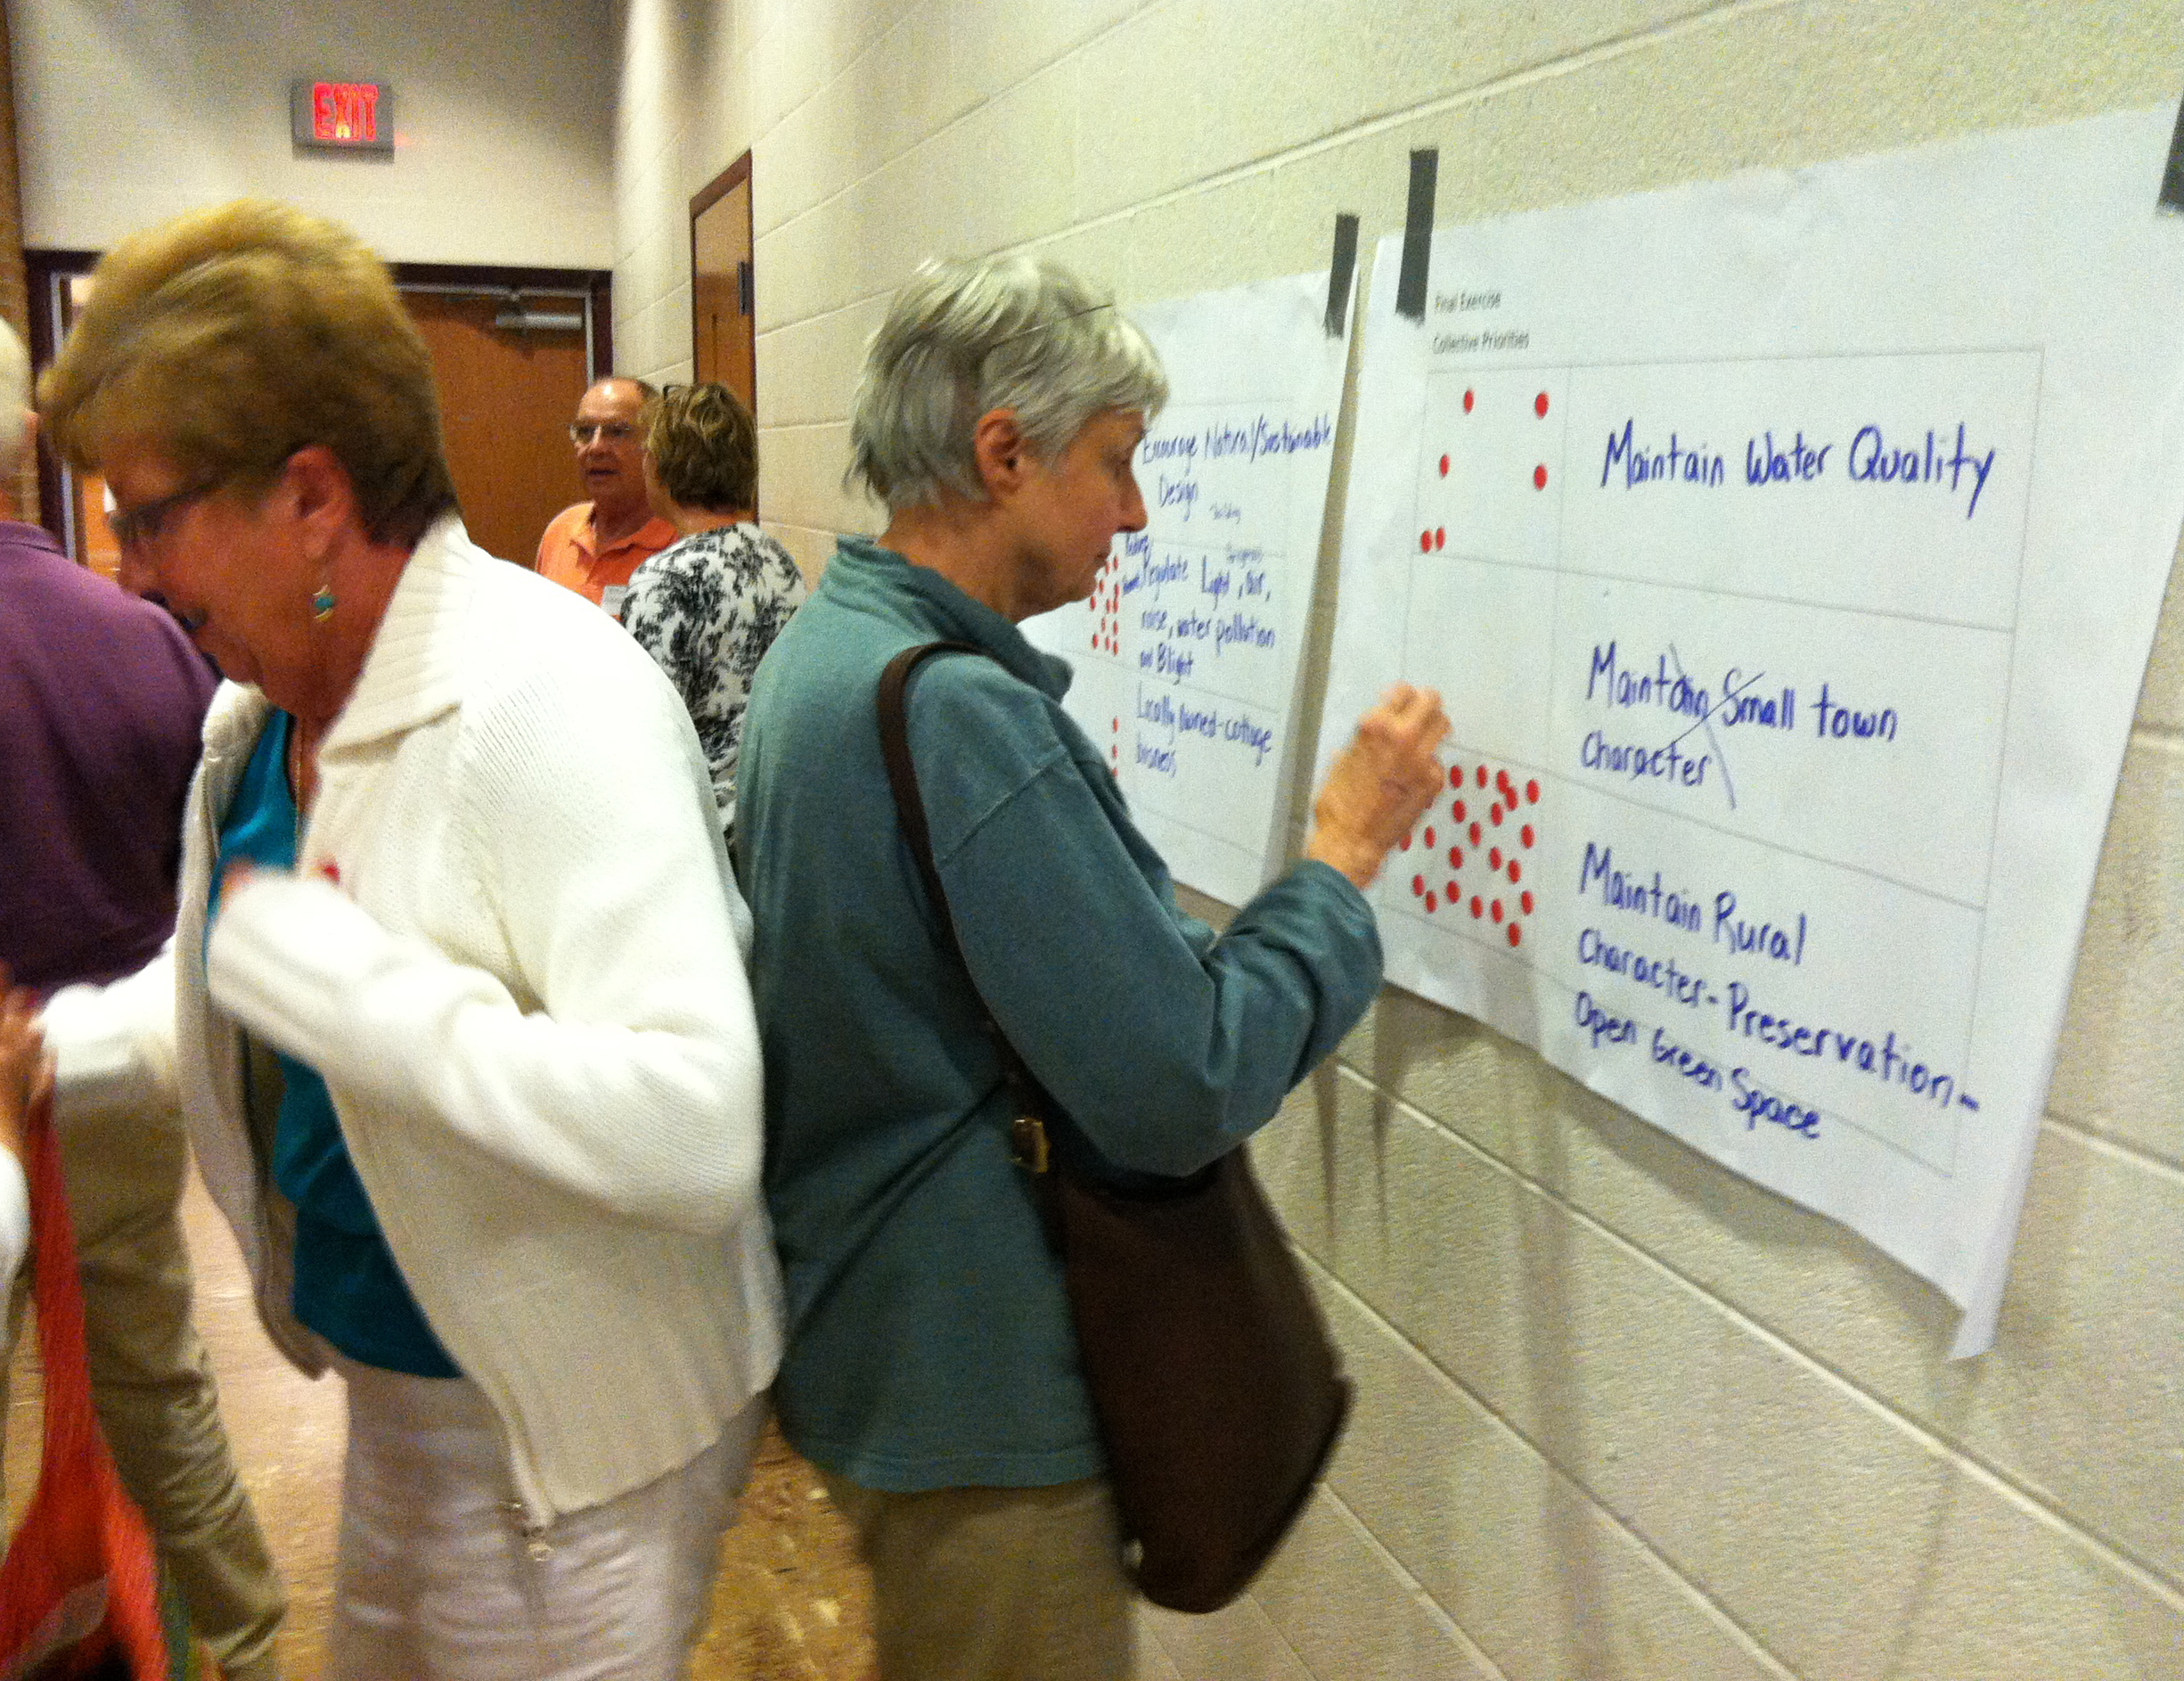 EXIT
Encourage Natural/Sustainable
Design
Regulate Light, air,
noise, water pollution
and Blight
Locally Owned-cottage
Final Exercise
Collective Priorities
Maintain Water Quality
Maintain Small town
Character
Maintain Rural
Character-Preservation-
Open Green Space